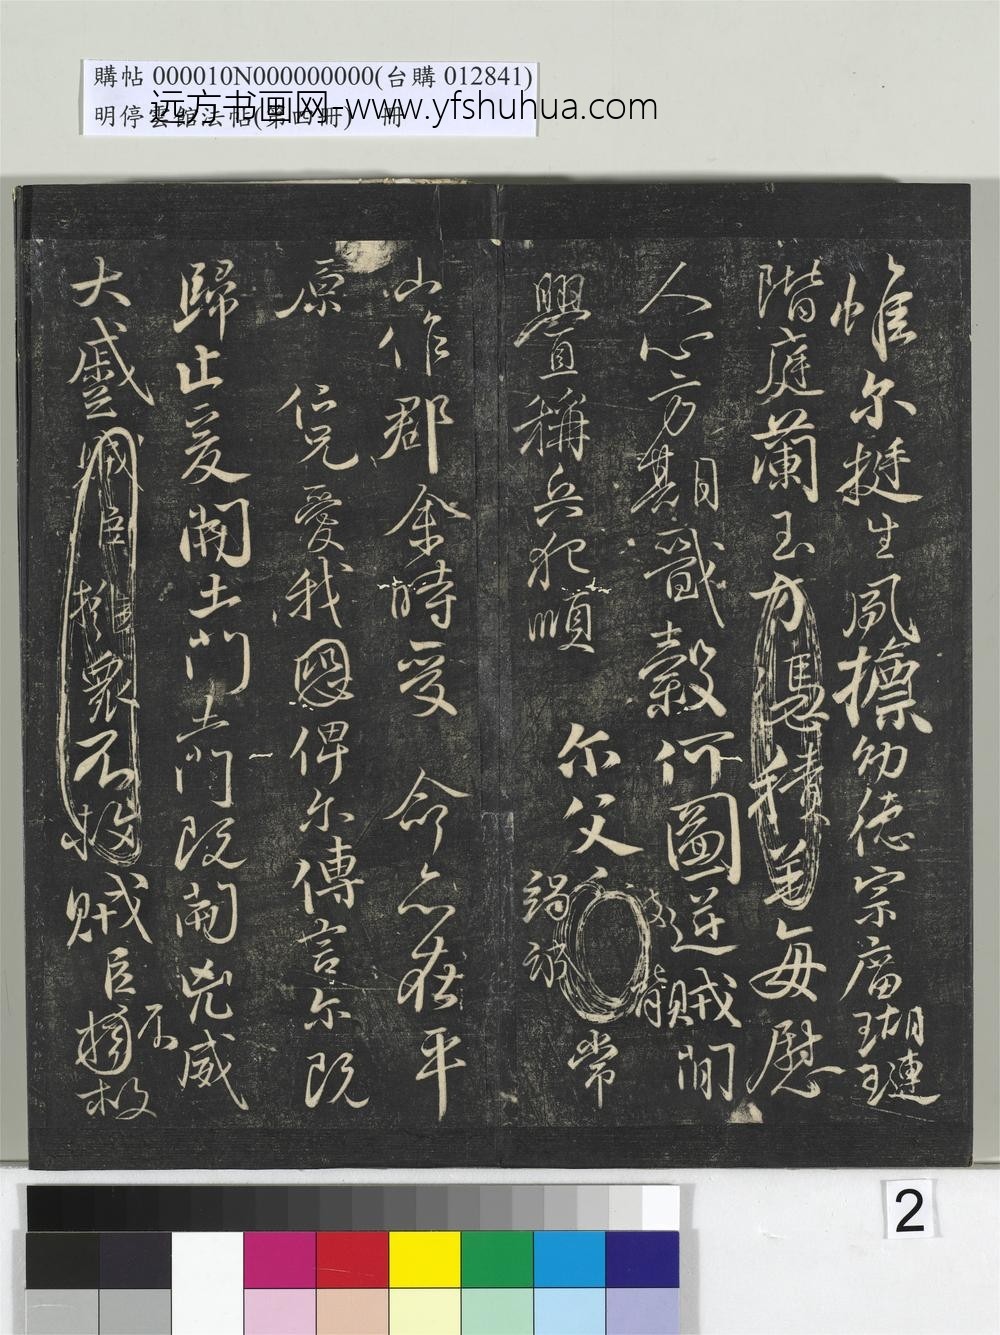 購帖 000010N000000000(台購 012841)
明停雲館法帖(第四冊) 冊
远方书画网-www.yfshuhua.com
惟尔挺生夙摽幼德宗廟瑚璉
階庭蘭玉方憑積善每慰
人心方期戩穀何圖逆賊間
舋稱兵犯順
尔父
竭誠
常
山作郡余時受命亦在平
原仁兄愛我恩俾尔傳言尔既
歸止爰開土門土門既開兇威
大蹙賊臣擁衆不救賊臣不
擁救
2